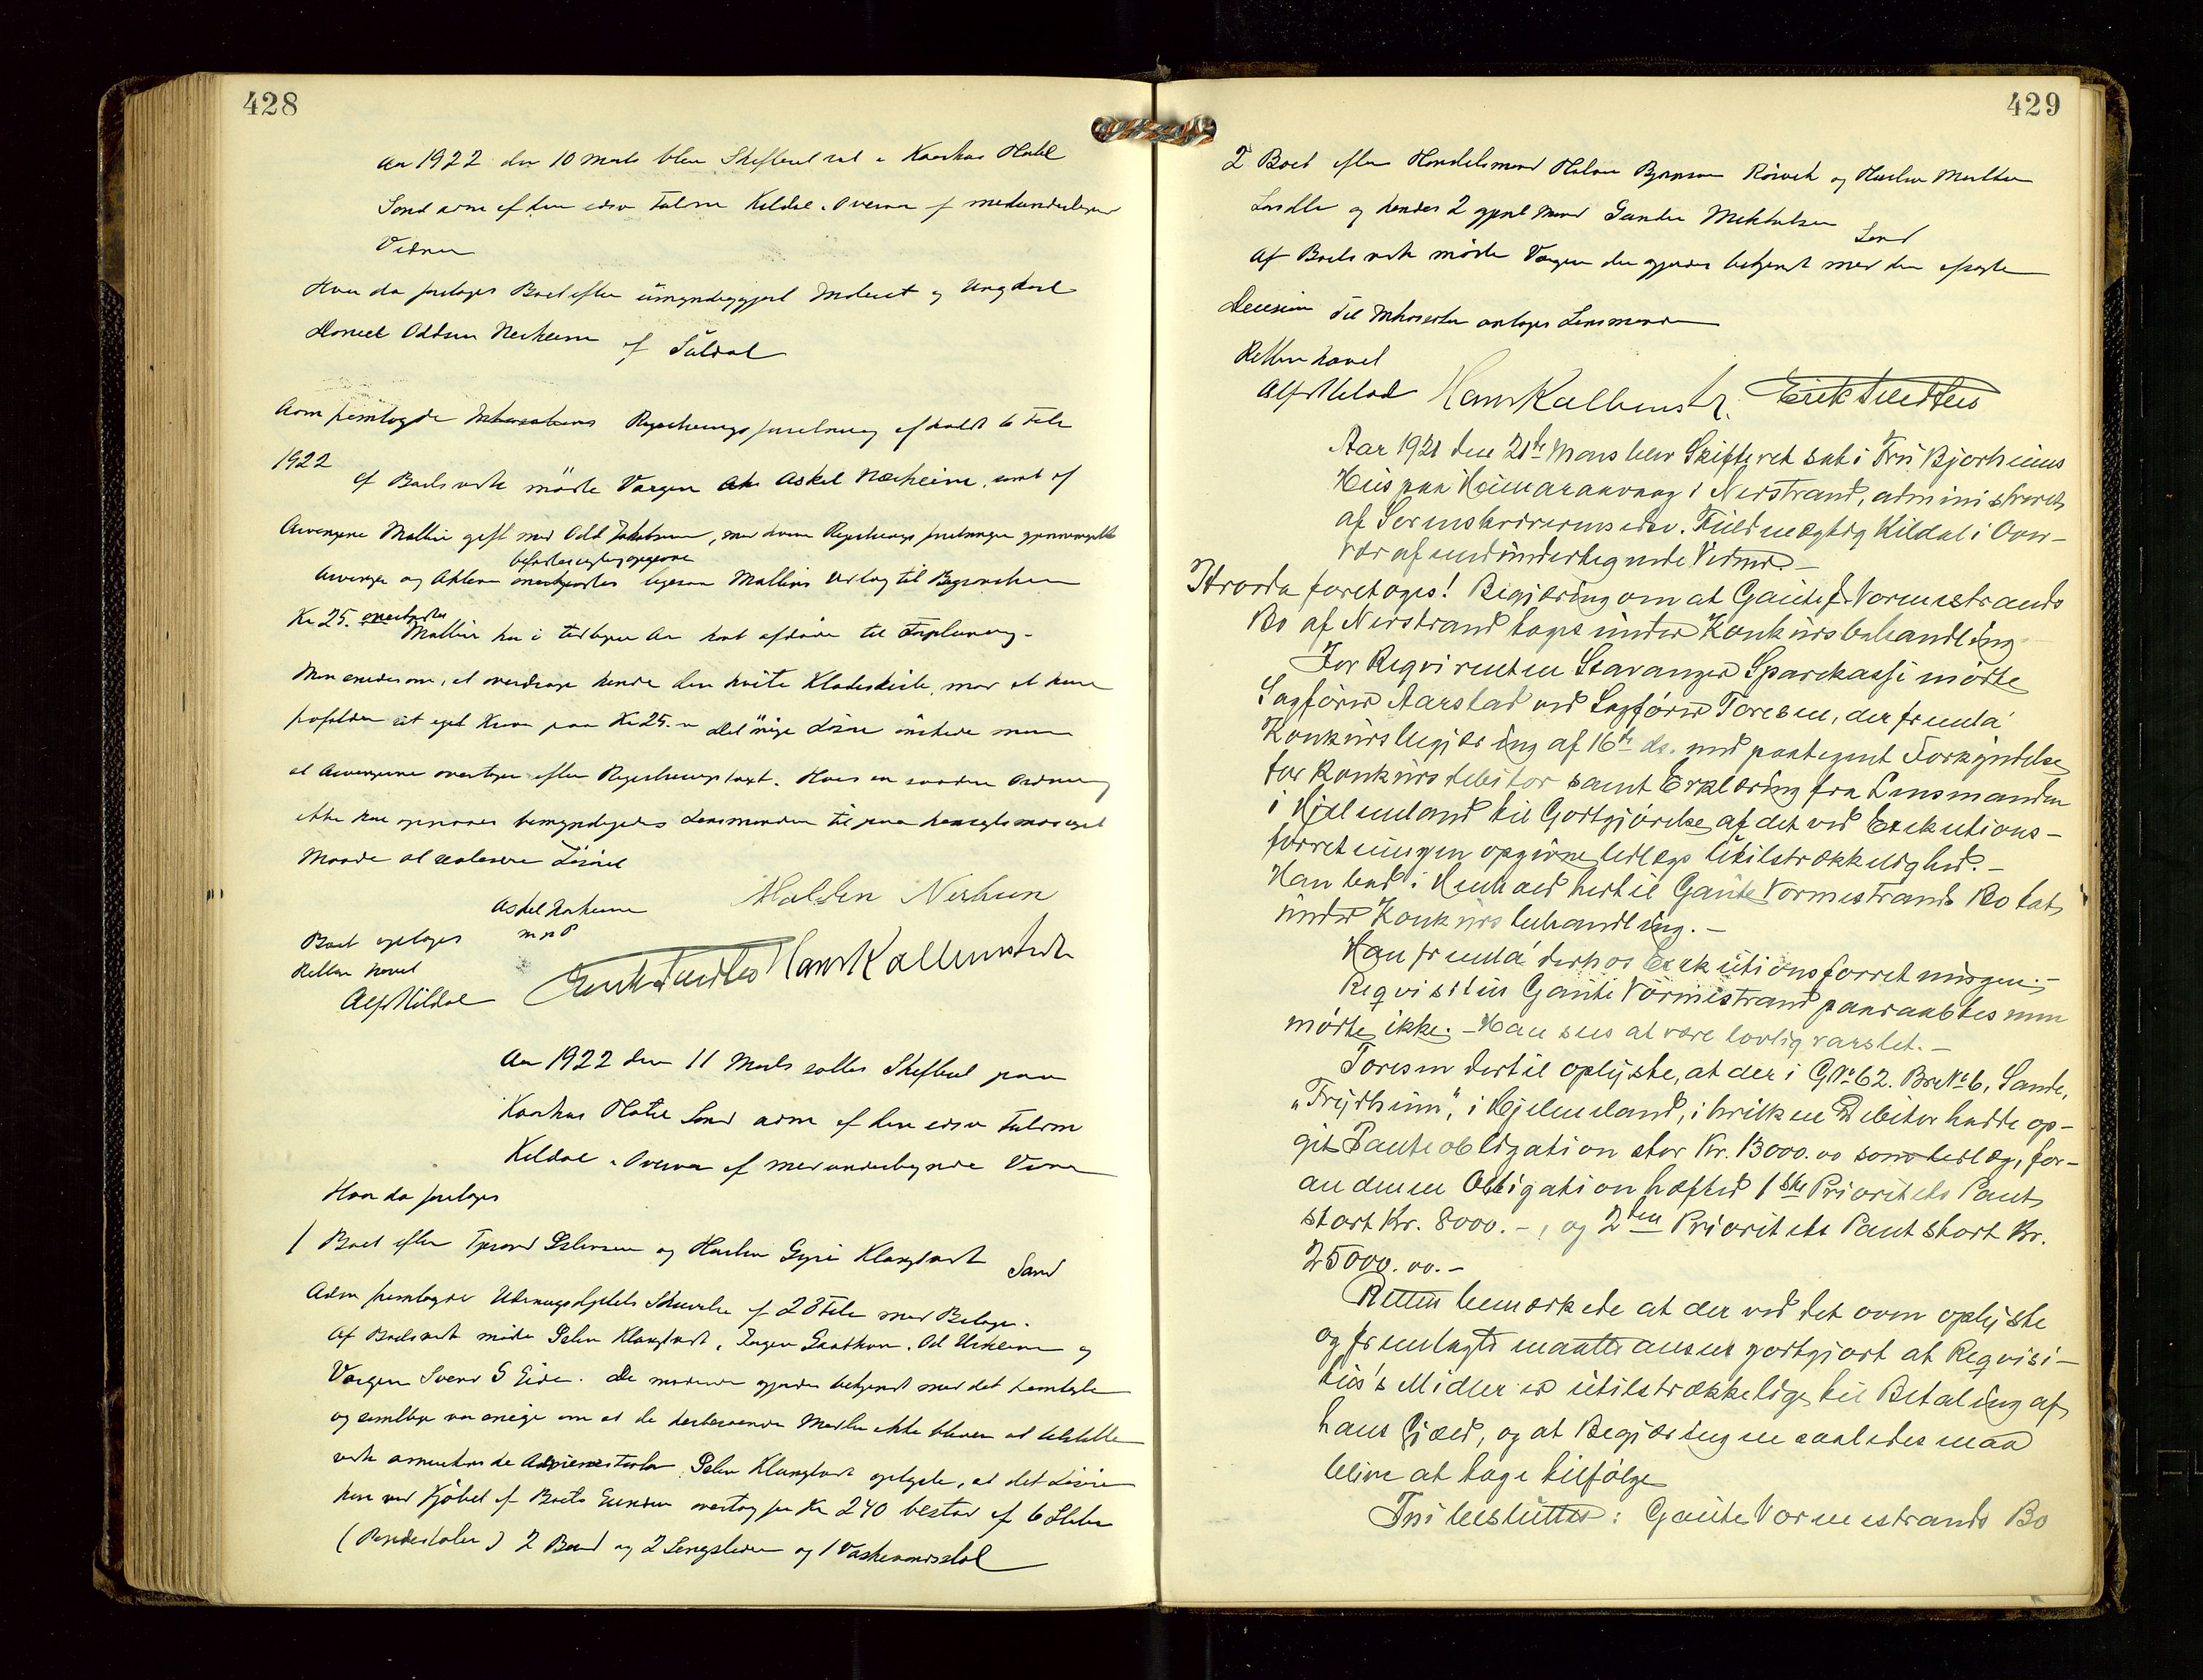 428
Aar 1922 den 10 Marts blev Skifteret sat i Kaarhus Hotel
Sand adm af den edsv Fuldm Kildal i Overvær af medunderskrevne
Vidner
Hvor da foretoges Boet efter umyndiggjort Inderst og Ungkarl
Daniel Oddsen Nerheim af Suldal
Adm fremlagde Registreringsforretning afholdt 6 Febr
1922
Af Boets vedk mødte Værgen Askel Nærheim, samt af
Arvingene Malline gift med Odd Jakobsen, med hvem Registreringsforretningen gjennemgikk
Arvinger og Aktiva ligesaa Mallins Udlæg til Begravelsen
Kr 25. Mallin har i tidligere Aar havt afdøde til Forpleining.
Man enedes om, at overdrage hende den hvite Klædeskiste, mod at hun
frafalder sit eget Krav paa Kr 25. Det øvrige Løsøre ønskede man
at Arvingerne overtager efter Registreringstaxt. Hvis en saadan Ordning
ikke kan opnaaes bemyndigedes Lensmanden til paa hensigtsmæssigst
Maade at realisere Løsøret
Askel Nerheim
m p P
Malden Nerheim
Boet optages
Retten hævet
Alf Kildal
Hans Kallunstedt
Aar 1922 den 11 Marts sattes Skifteret paa
Kaarhus Hotel Sand adm af den edsv Fuldm
Kildal i Overvær af medunderskrevne Vidner
Hvor da foretoges
1 Boet efter Gjermund Eilersen og Hustru Gyri Klungtvedt Sand
Adm fremlagde Skrivelse af 28 Febr med Bilage.
Af Boets vedk mødte Klungtvedt,
Værgen Svend S Eide. De mødende gjordes bekjendt med det fremlagte
og samtlige var enige om at de Midler ikke bliver at
Klungtvedt oplyste, at det Løsøre
han ved Kjøbet af Boets Eiendom overtog for Kr 240 bestod af 6 Stole
(Pindestoler) 2 Bord og 2 Sengsteder og 1 Vaskevandsstol
429
2 Boet efter Handelsmand Halvor Bjørnsen Rørvik og Hustru Marthe
Larsdtr og hendes 2 gjfte Mand Gunder Mikkelsen Sand
Af Boets vedk mødte Værgen der gjordes bekjendt med den afsagte
Decision Til Inkassator antages Lensmanden
Retten hævet
Alf Kildal Hans Kallunstedt.
Aar 1921 den 21de Mars blev Skifteret sat i Fru Bjorheims
Hus paa Heimaravaag i Nerstrand, administreret
af Sorenskriverens edsv. Fuldmægtig Kildal i Over-
vær af medunderteg nede Vidner.—
Hvorda foretoges! Begjæring om at Gaute J. Vormestrands
Bo af Nerstrand tages under Konkursbehandling.
For Reqvirenten Stavanger Sparekasse mødte
Sagfører Aarstad ved Sagfører Toresen, der fremla'
Konkursbegjæring af 16de ds. med paategnet Forkyndelse
for Konkursdebitor samt Erklæring fra Lensmanden
i Hjelmeland til Godtgjørelse af det ved Exekutions-
forretningen opgivne Utilstrækkelighed.—
Han bad i Henhold hertil Gaute Vormestrands Bo tat
under Konkursbehandling.—
Han fremla' derhos Exekutionsforretningen.—
Reqvisitus Gaute Vormestrand paaraabtes men
mødte ikke.— Han sees at være lovlig varslet.—
Toresen dertil oplyste, at der i GNo 62. BrNo 6, Sande,
"Frydheim", i Hjelmeland, i hvilken Debitor hadde op-
git Panteobligation stor Kr. 13000.00 som Utlæg, for-
an denne Obligation hæfted 1ste Prioritets Pant
stort Kr. 8000.—, og 2den Prioritets Pant stort Kr.
25000.00.—
Retten bemærkede at der ved det oven oplyste
og fremlagte maatte ansees godtgjort at Reqvisi-
tus's Midler er utilstrækkelige til Betaling af
hans Gjæld, og at Begjæringen saaledes maa
blive at tage tilfølge
Thi besluttes: Gaute Vormestrands Bo